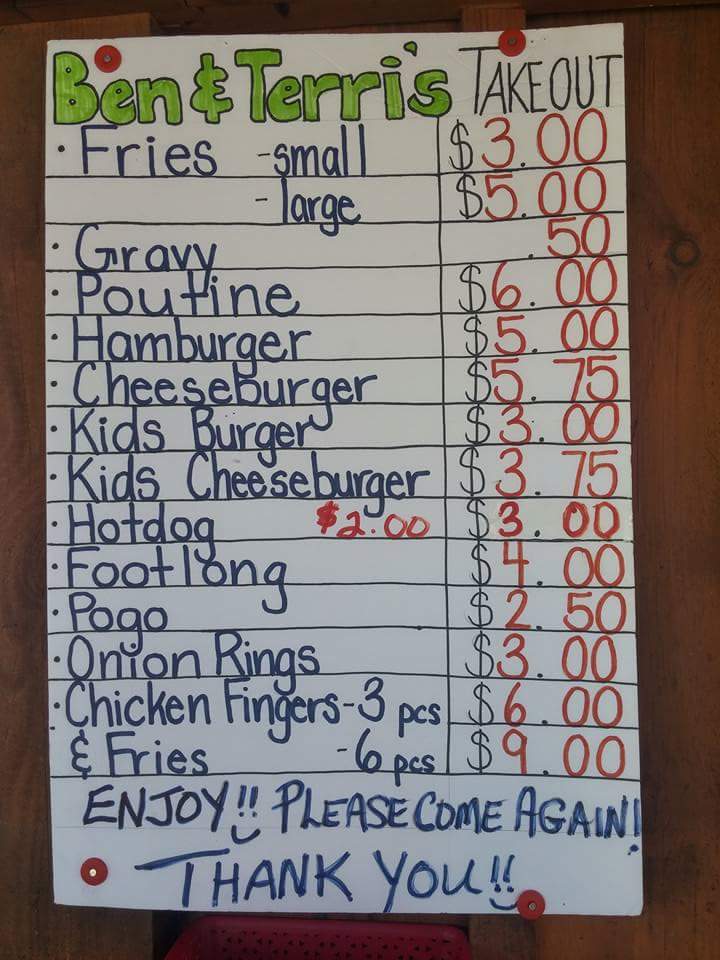 Ben & Terri's TAKEOUT
• Fries - small $3.00
- large $5.00
• Gravy .50
• Poutine $6.00
• Hamburger $5.00
• Cheeseburger $5.75
• Kids Burger $3.00
• Kids Cheeseburger $3.75
• Hotdog $2.00 $3.00
• Footlong $4.00
• Pogo $2.50
• Onion Rings $3.00
• Chicken Fingers - 3 pcs $6.00
& Fries - 6 pcs $9.00
ENJOY!! PLEASE COME AGAIN!
THANK YOU!!